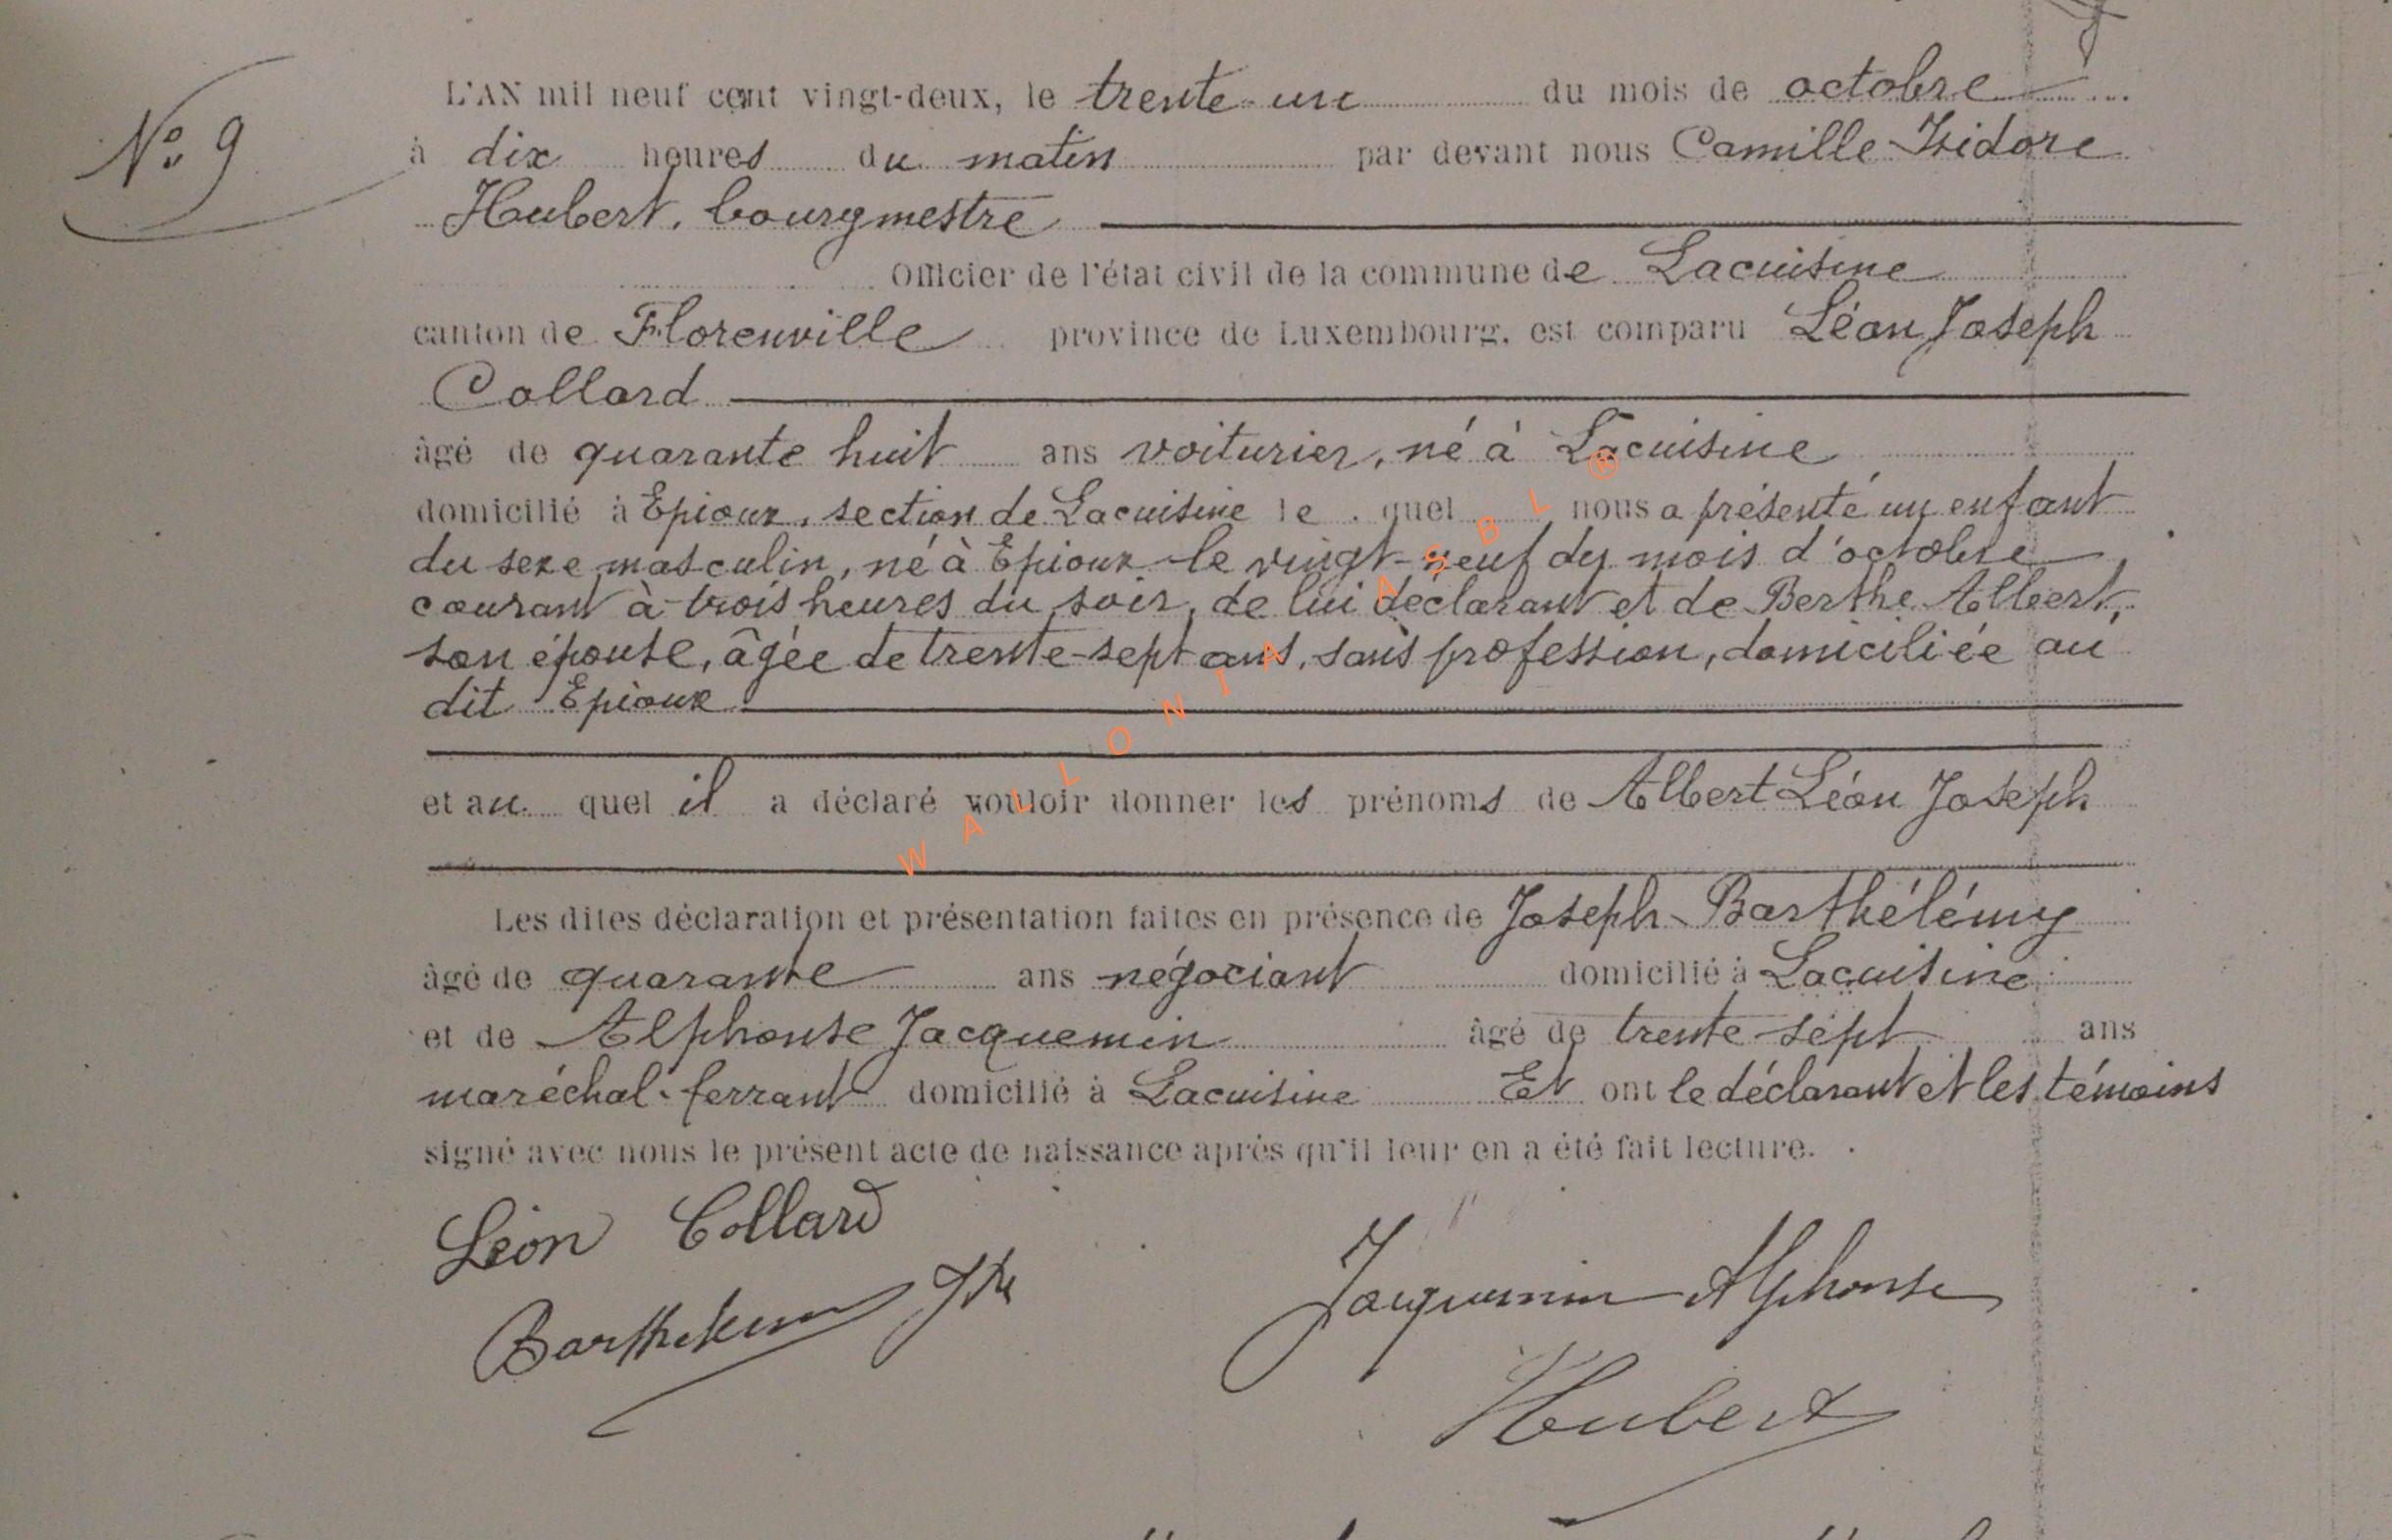 N° 9
L'AN mil neuf cent vingt-deux, le trente-un du mois de octobre
à dix heures du matin par devant nous Camille Isidore
Hubert, bourgmestre
Officier de l'état civil de la commune de Lacuisine
canton de Florenville province de Luxembourg, est comparu Léon Joseph
Collard
âgé de quarante huit ans voiturier, né à Lacuisine
domicilié à Epioux, section de Lacuisine le quel nous a présenté un enfant
du sexe masculin, né à Epioux le vingt-neuf du mois d'octobre
courant à trois heures du soir, de lui déclarant et de Berthe Albert,
son épouse, âgée de trente-sept ans, sans profession, domiciliée au
dit Epioux
et au quel il a déclaré vouloir donner les prénoms de Albert Léon Joseph
Les dites déclaration et présentation faites en présence de Joseph Barthélémy
âgé de quarante ans négociant domicilié à Lacuisine
et de Alphonse Jacquemin âgé de trente-sept ans
maréchal-ferrant domicilié à Lacuisine Et ont le déclarant et les témoins
signé avec nous le présent acte de naissance après qu'il leur en a été fait lecture.
Léon Collard
Barthelemy Jph
Jacquemin Alphonse
Hubert
WALLONIA ASBL ®